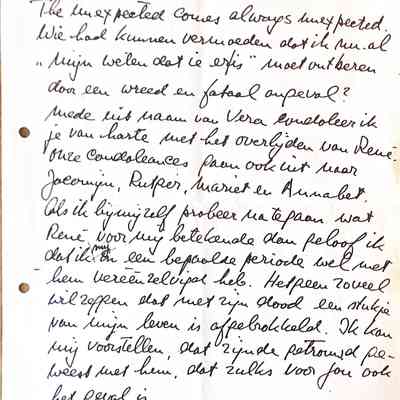 The unexpected comes always unexpected.
Wie had kunnen vermoeden dat ik nu al
„mijn weten dat ie er is" moet ontberen
door een wreed en fataal ongeval?
Mede uit naam van Vera condoleer ik
je van harte met het overlijden van René.
Onze condoleances gaan ook uit naar
Jacomijn, Rutger, Mariet en Annabet.
Als ik bij mijzelf probeer na te gaan wat
René voor mij betekende dan geloof ik
dat ik mij in een bepaalde periode wel met
hem vereenzelvigd heb. Hetgeen zoveel
wil zeggen dat met zijn dood een stukje
van mijn leven is afgebrokkeld. Ik kan
mij voorstellen, dat zijnde getrouwd ge-
weest met hem, dat zulks voor jou ook
het geval is